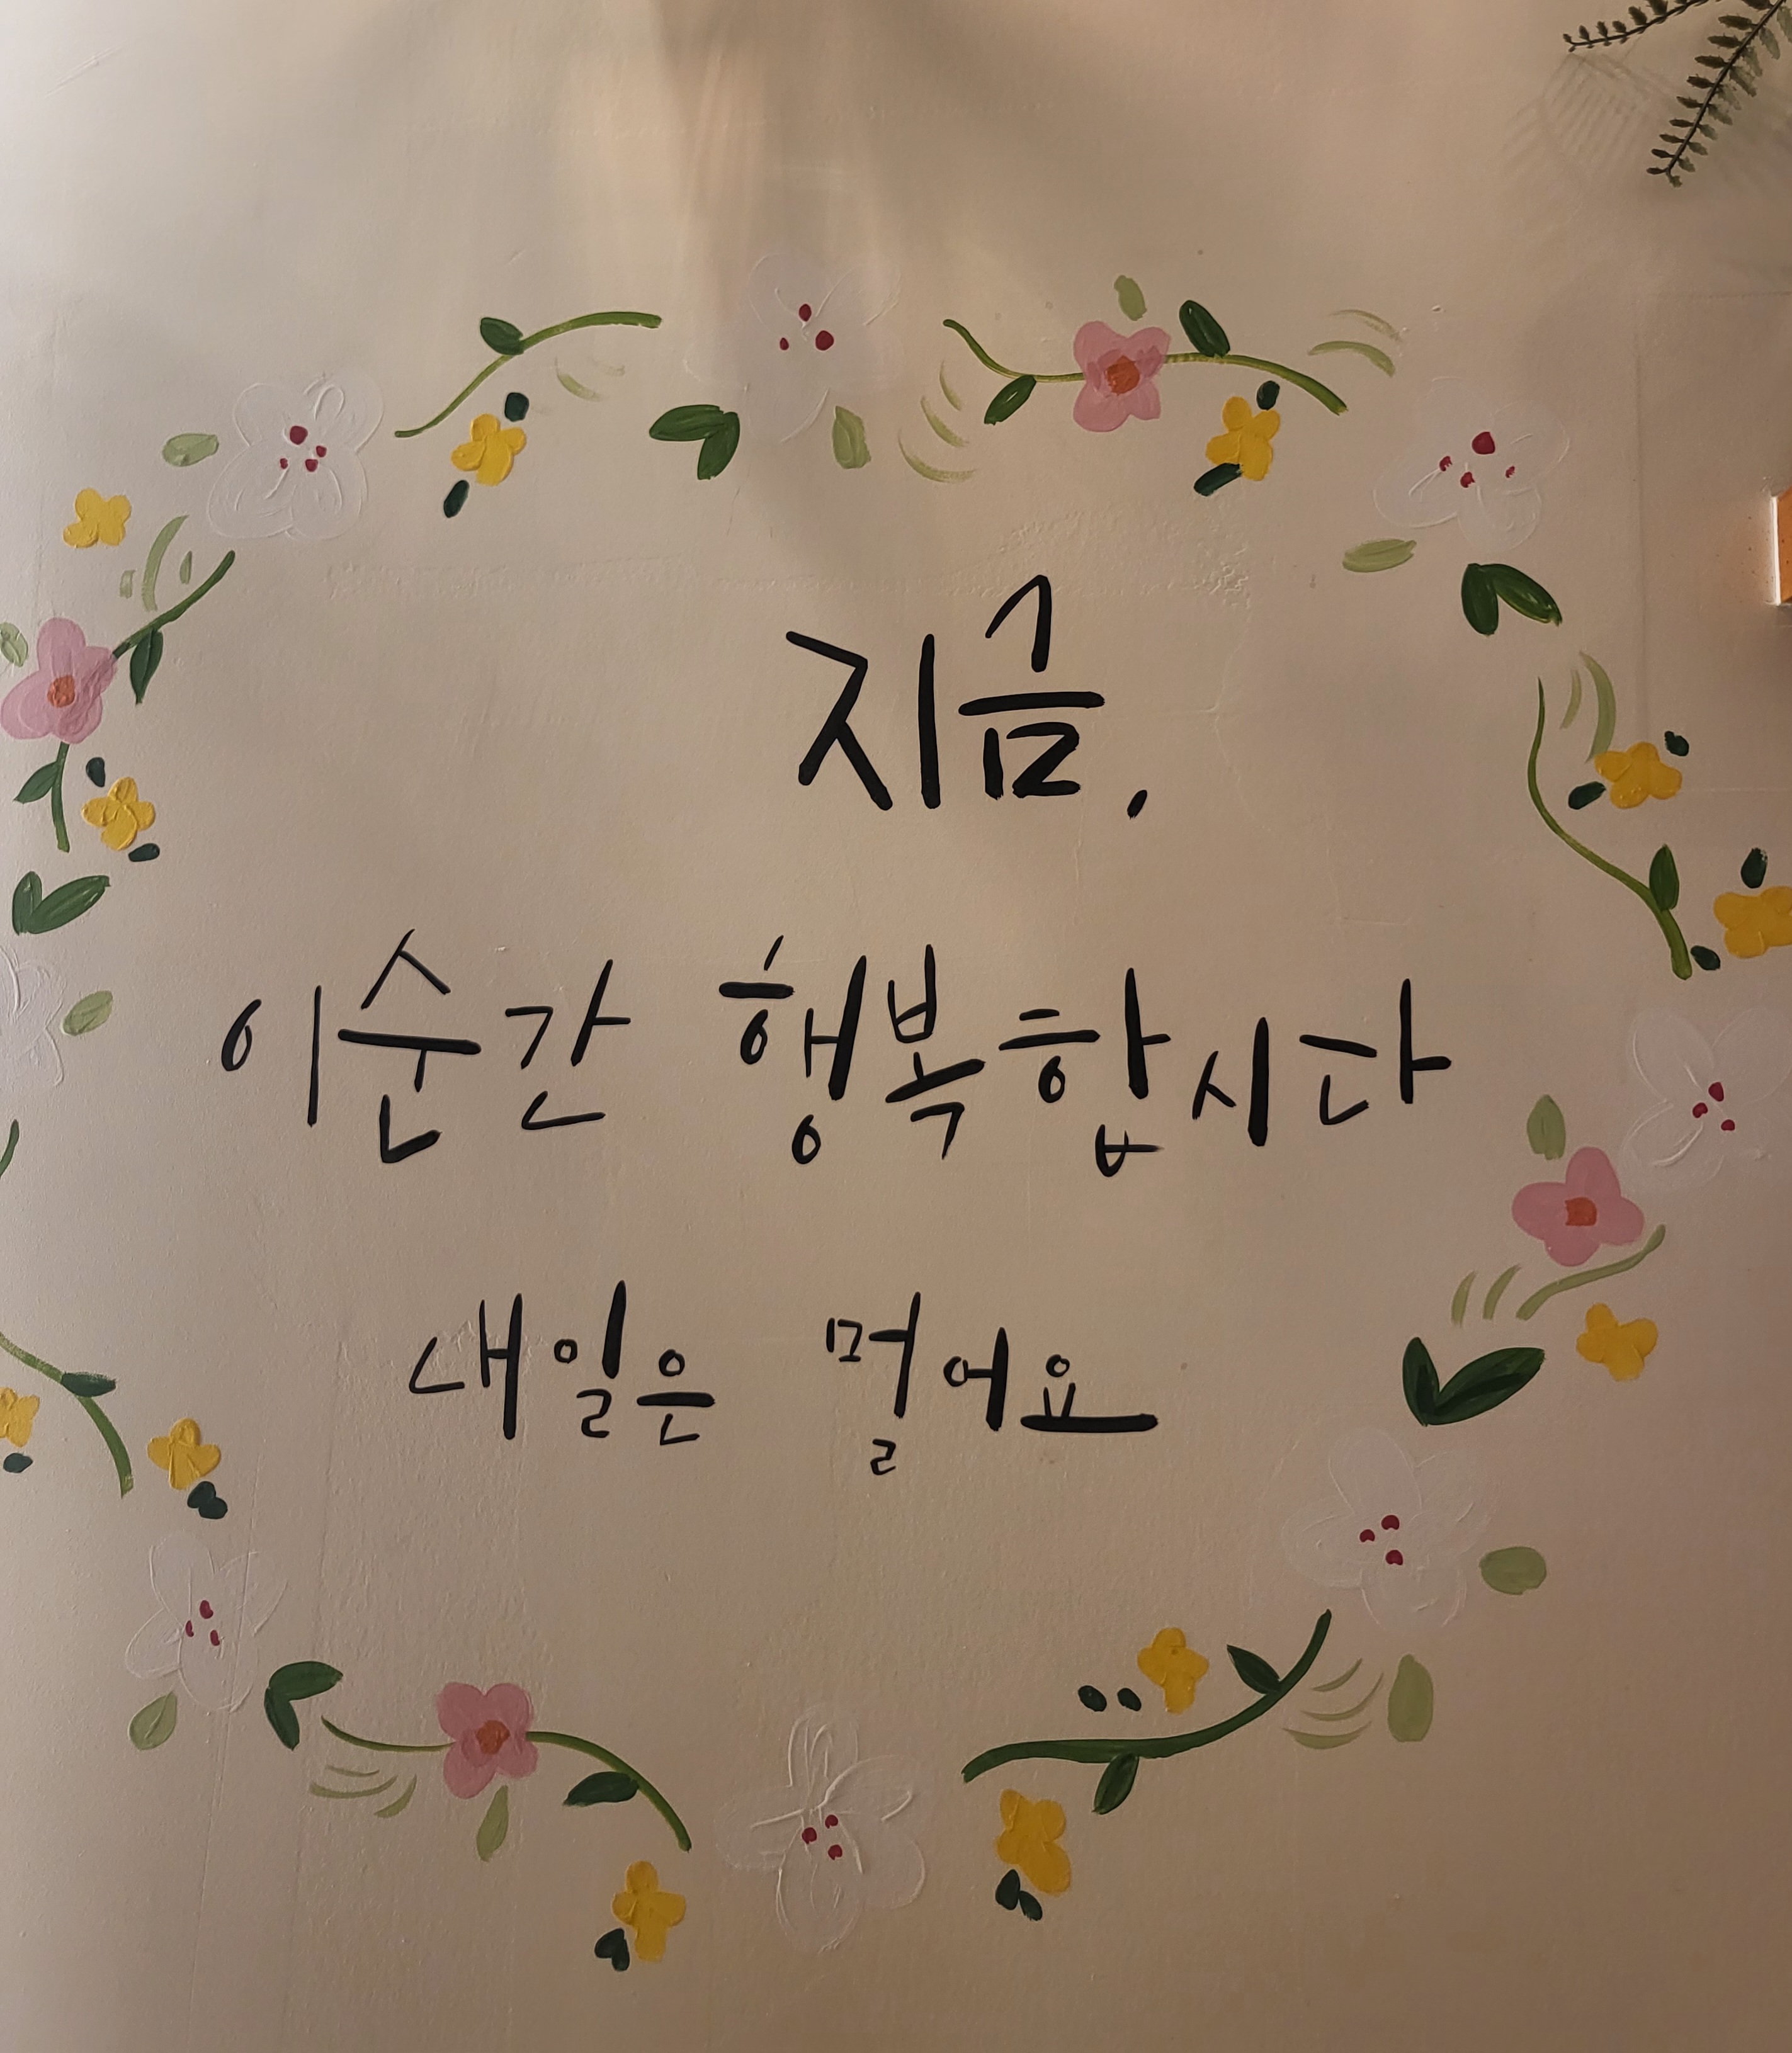 지금.
이순간 행복합시다
내일은 멀어요